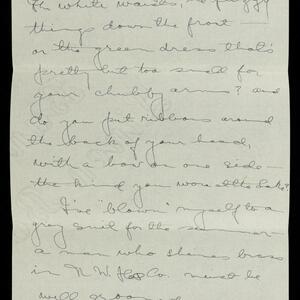 white waists,
things down the front —
or the green dress that's
pretty but too small for
your chubby arms? and
do you put ribbons around
the back of your head,
with a bow on one side —
the kind you wore at the Lake?
I've "blown" myself to a
grey suit for the summer —
a man who shines brass
in N. W. Co. must be
well groomed